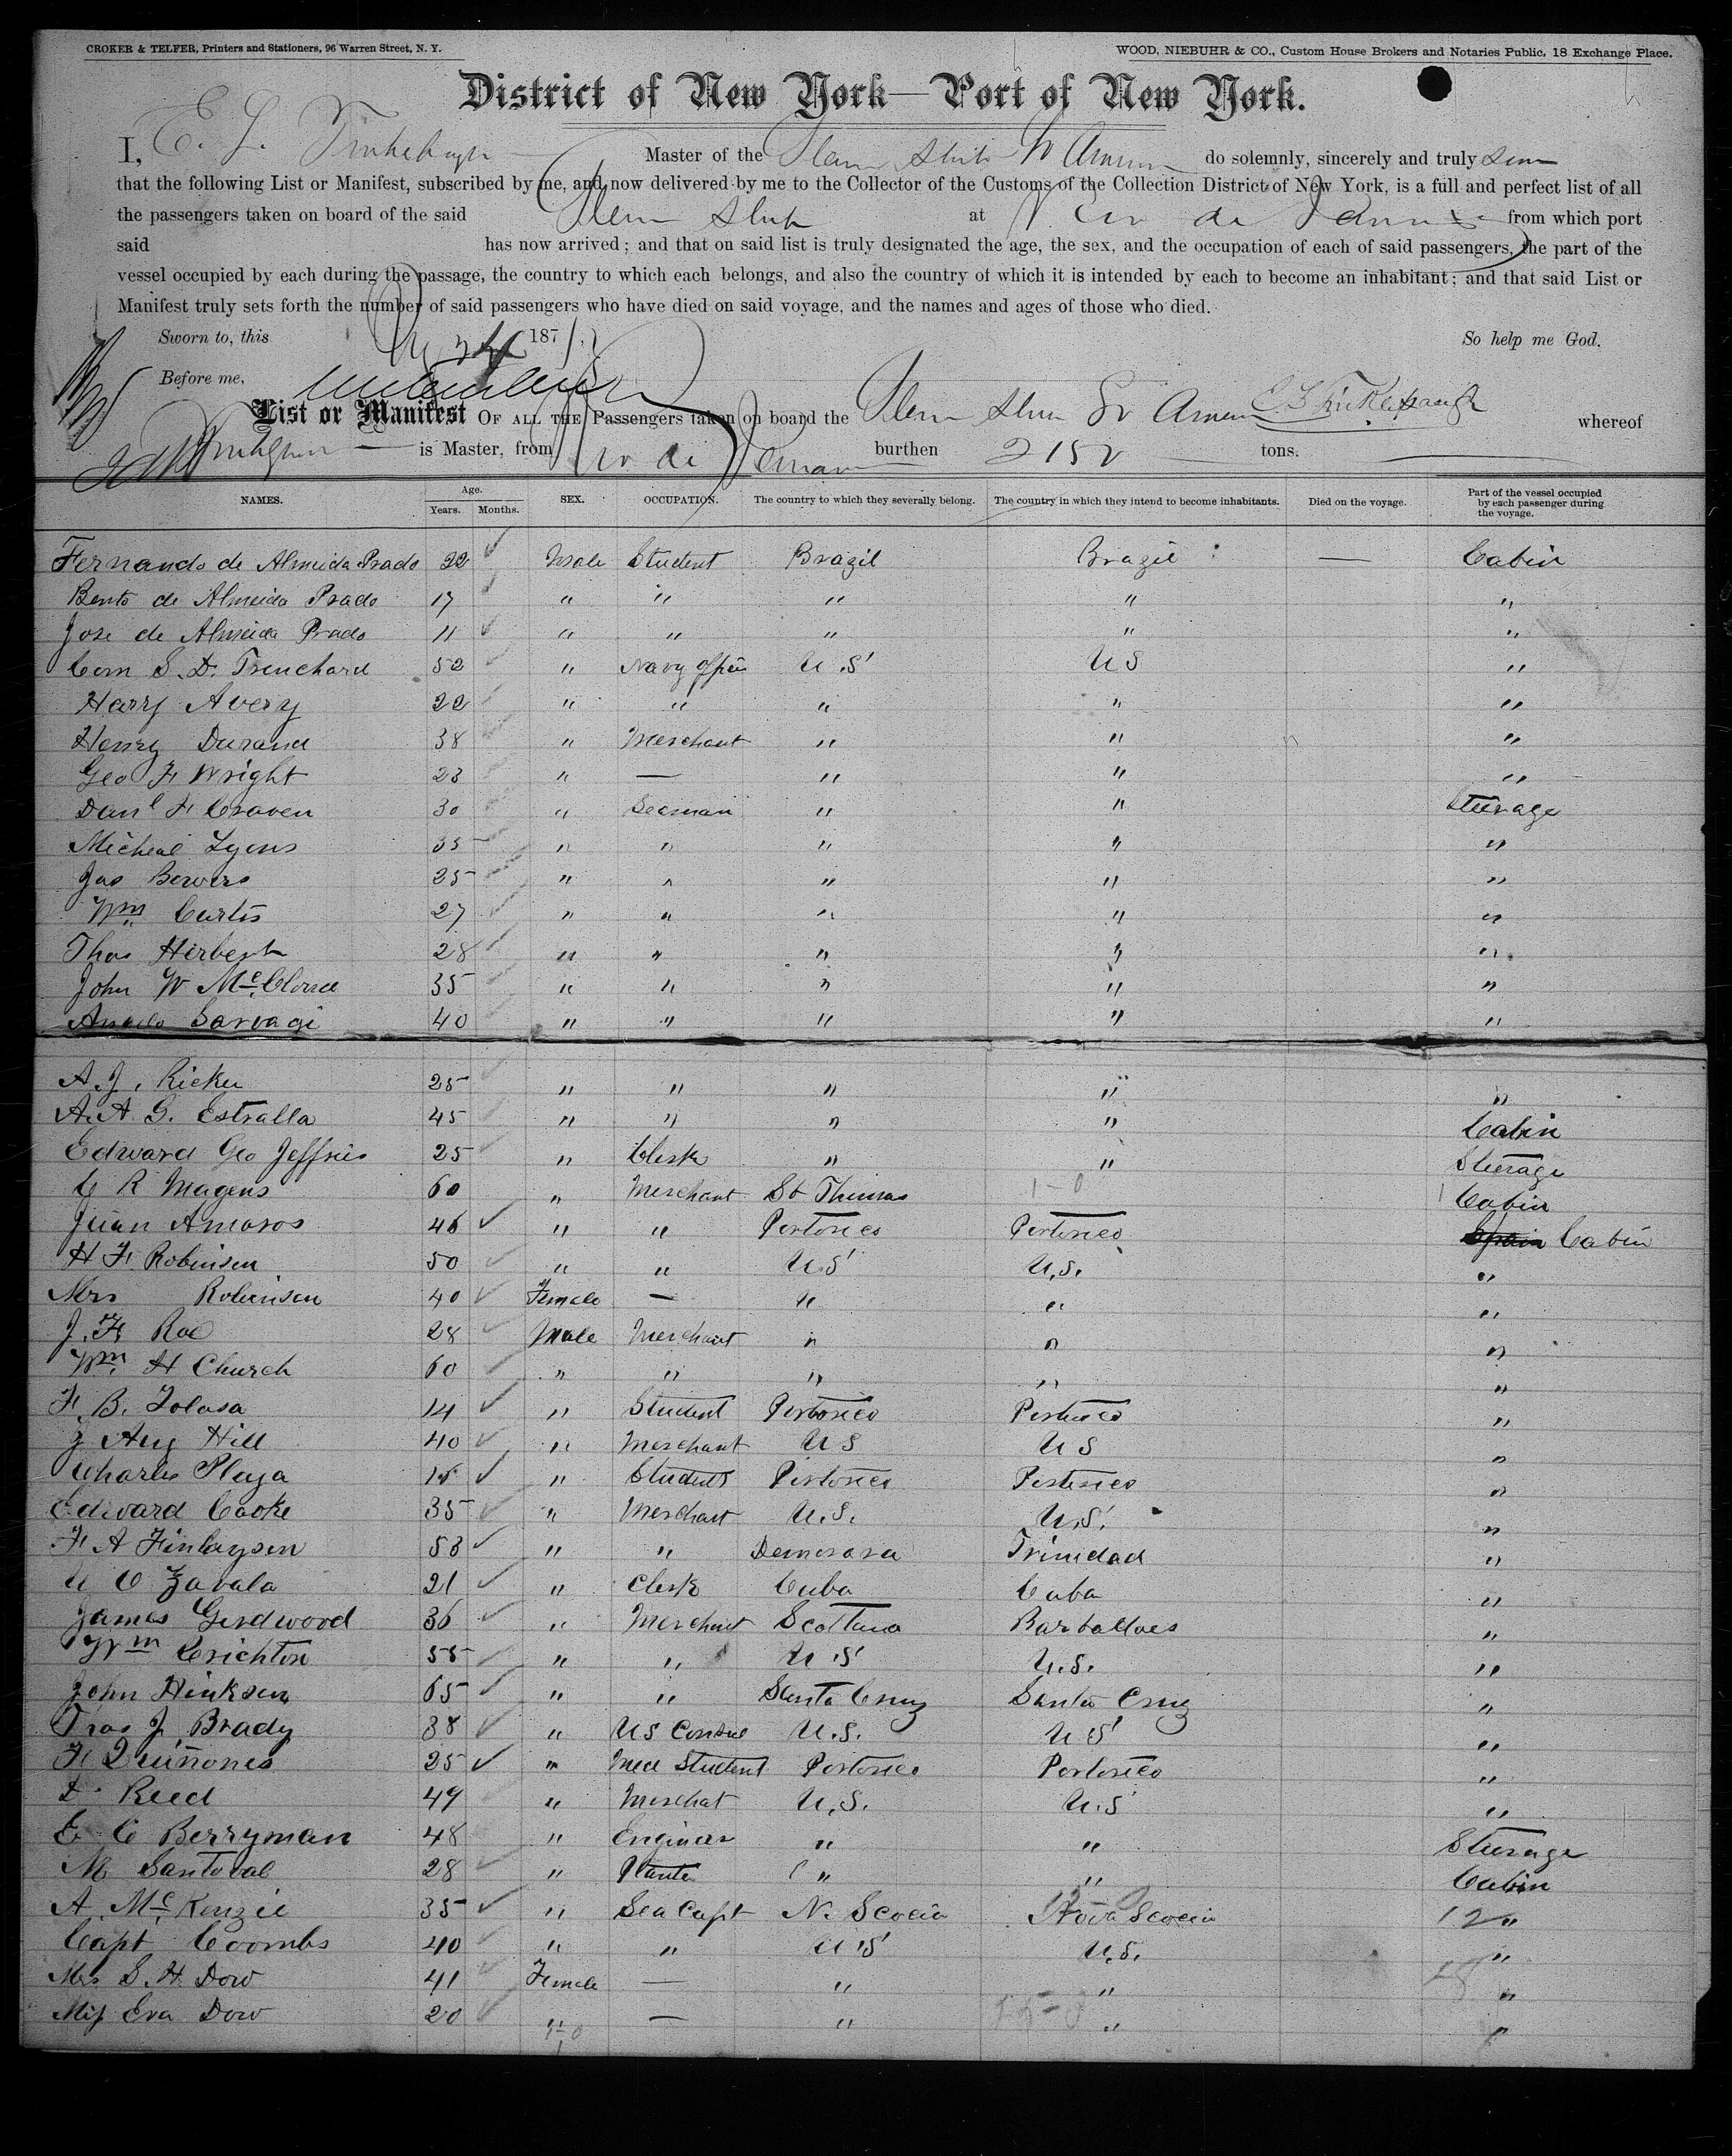 CROKER & TELFER, Printers and Stationers, 96 Warren Street, N. Y.
WOOD, NIEBUHR & CO., Custom House Brokers and Notaries Public, 18 Exchange Place.
District of New York—Port of New York.
I, E. L. Master of the do solemnly, sincerely and truly
that the following List or Manifest, subscribed by me, and now delivered by me to the Collector of the Customs of the Collection District of New York, is a full and perfect list of all
the passengers taken on board of the said at from which port
said has now arrived; and that on said list is truly designated the age, the sex, and the occupation of each of said passengers, the part of the
vessel occupied by each during the passage, the country to which each belongs, and also the country of which it is intended by each to become an inhabitant; and that said List or
Manifest truly sets forth the number of said passengers who have died on said voyage, and the names and ages of those who died.
Sworn to, this 187 So help me God.
Before me,
List or Manifest OF ALL THE Passengers taken on board the whereof
is Master, from burthen 2152 tons.
NAMES. Age. Years. Months. SEX. OCCUPATION. The country to which they severally belong. The country in which they intend to become inhabitants. Died on the voyage. Part of the vessel occupied by each passenger during the voyage.
Fernando de Almeida Prado 22 Male Student Brazil Brazil — Cabin
Bento de Almeida Prado 17 " " " " "
Jose de Almeida Prado 11 " " " " "
Com S. D. Trenchard 52 " Navy U.S US "
Harry Avery 22 " " " " "
Henry Durand 38 " Merchant " " "
Geo F Wright 23 " — " " "
Danl F Craven 30 " Seaman " " Steerage
Micheal Lyons 35 " " " " "
Jas Bowers 25 " " " " "
Wm Curtis 27 " " " " "
Thos Herbert 28 " " " " "
John W 35 " " " " "
40 " " " " "
A. J. 25 " " " " "
A. A. G. Estralla 45 " " " " Cabin
Edward Geo Jeffries 25 " Clerk " " Steerage
C R Magens 60 " Merchant St Thomas 1-0 Cabin
Juan Amoros 46 " " Portorico Portorico Cabin
H F Robinson 50 " " U.S U.S. "
Mrs Robinson 40 Female — " " "
J. F. Roe 28 Male Merchant " " "
Wm H Church 60 " " " " "
F. B. Tolosa 14 " Student Portorico Portorico "
Aug Hill 40 " Merchant US US "
Charles Plaza 15 " Student Portorico Portorico "
Edward Cooke 35 " Merchant U.S. U.S. "
F A Finlaysen 53 " " Demerara Trinidad "
C Zavala 21 " Clerk Cuba Cuba "
James Gerdwood 36 " Merchant Scotland Barbadoes "
Wm Crichton 55 " " U.S U.S. "
John Hinksen 65 " " Santa Cruz Santa Cruz "
Thos J. Brady 38 " US Consul U.S. U S "
F Quiñones 25 " Med Student Portorico Portorico "
D Reed 49 " Merchat U.S. U.S "
E C Berryman 48 " Engineer " " Steerage
M Santoval 28 " Planter " " Cabin
A. McKenzie 35 " Sea Capt N. Scocia Nova Scocia 12 "
Capt Coombs 40 " " U S U.S. "
Mrs S. H. Dow 41 Female — " " "
Miss Eva Dow 20 " — " " "